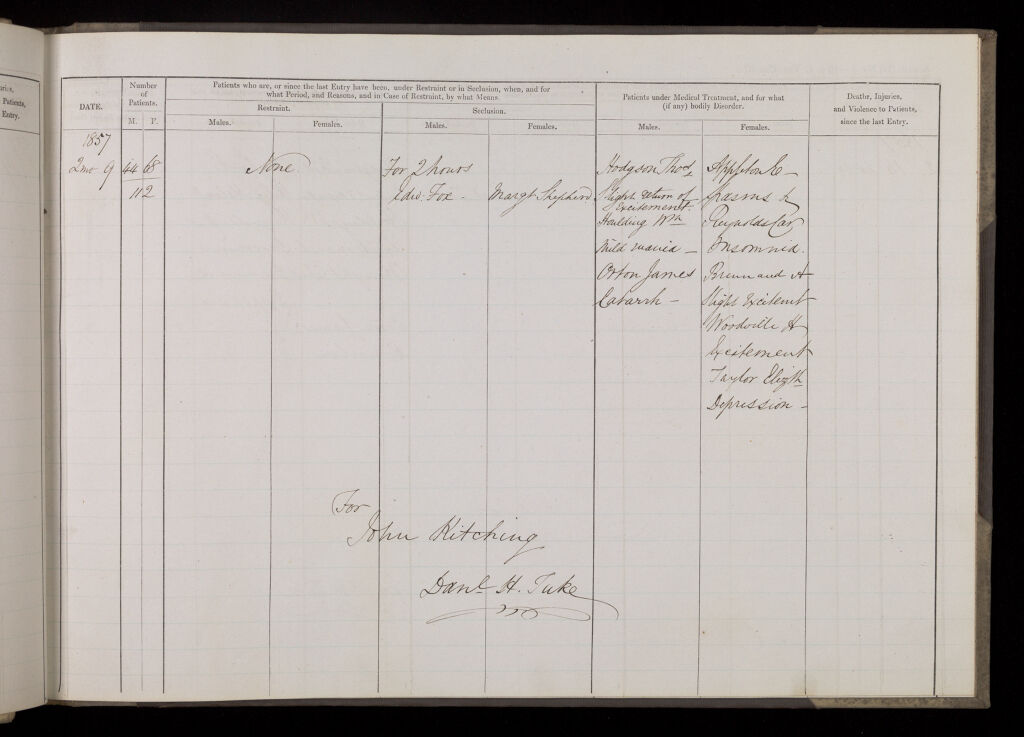 uries,
Patients,
Entry.
DATE.
Number
of
Patients.
M. F.
Patients who are, or since the last Entry have been, under Restraint or in Seclusion, when, and for
what Period, and Reasons, and in Case of Restraint, by what Means.
Restraint.
Seclusion.
Males. Females. Males. Females.
Patients under Medical Treatment, and for what
(if any) bodily Disorder.
Males. Females.
Deaths, Injuries,
and Violence to Patients,
since the last Entry.
1857
2mo 9 44 68
112
None
For 2 hours
Edw. Fox - Margt Shepherd
Hodgson Thos
Slight return of
Excitement.
Haulding Wm
Mild mania -
Orton James
Catarrh -
Appleton E -
Spasms &
Reynolds Car
Insomnia.
H
Slight Excitemt
Woodville H
Excitement
Taylor Elizth
Depression -
For
John Kitching
Danl H. Tuke